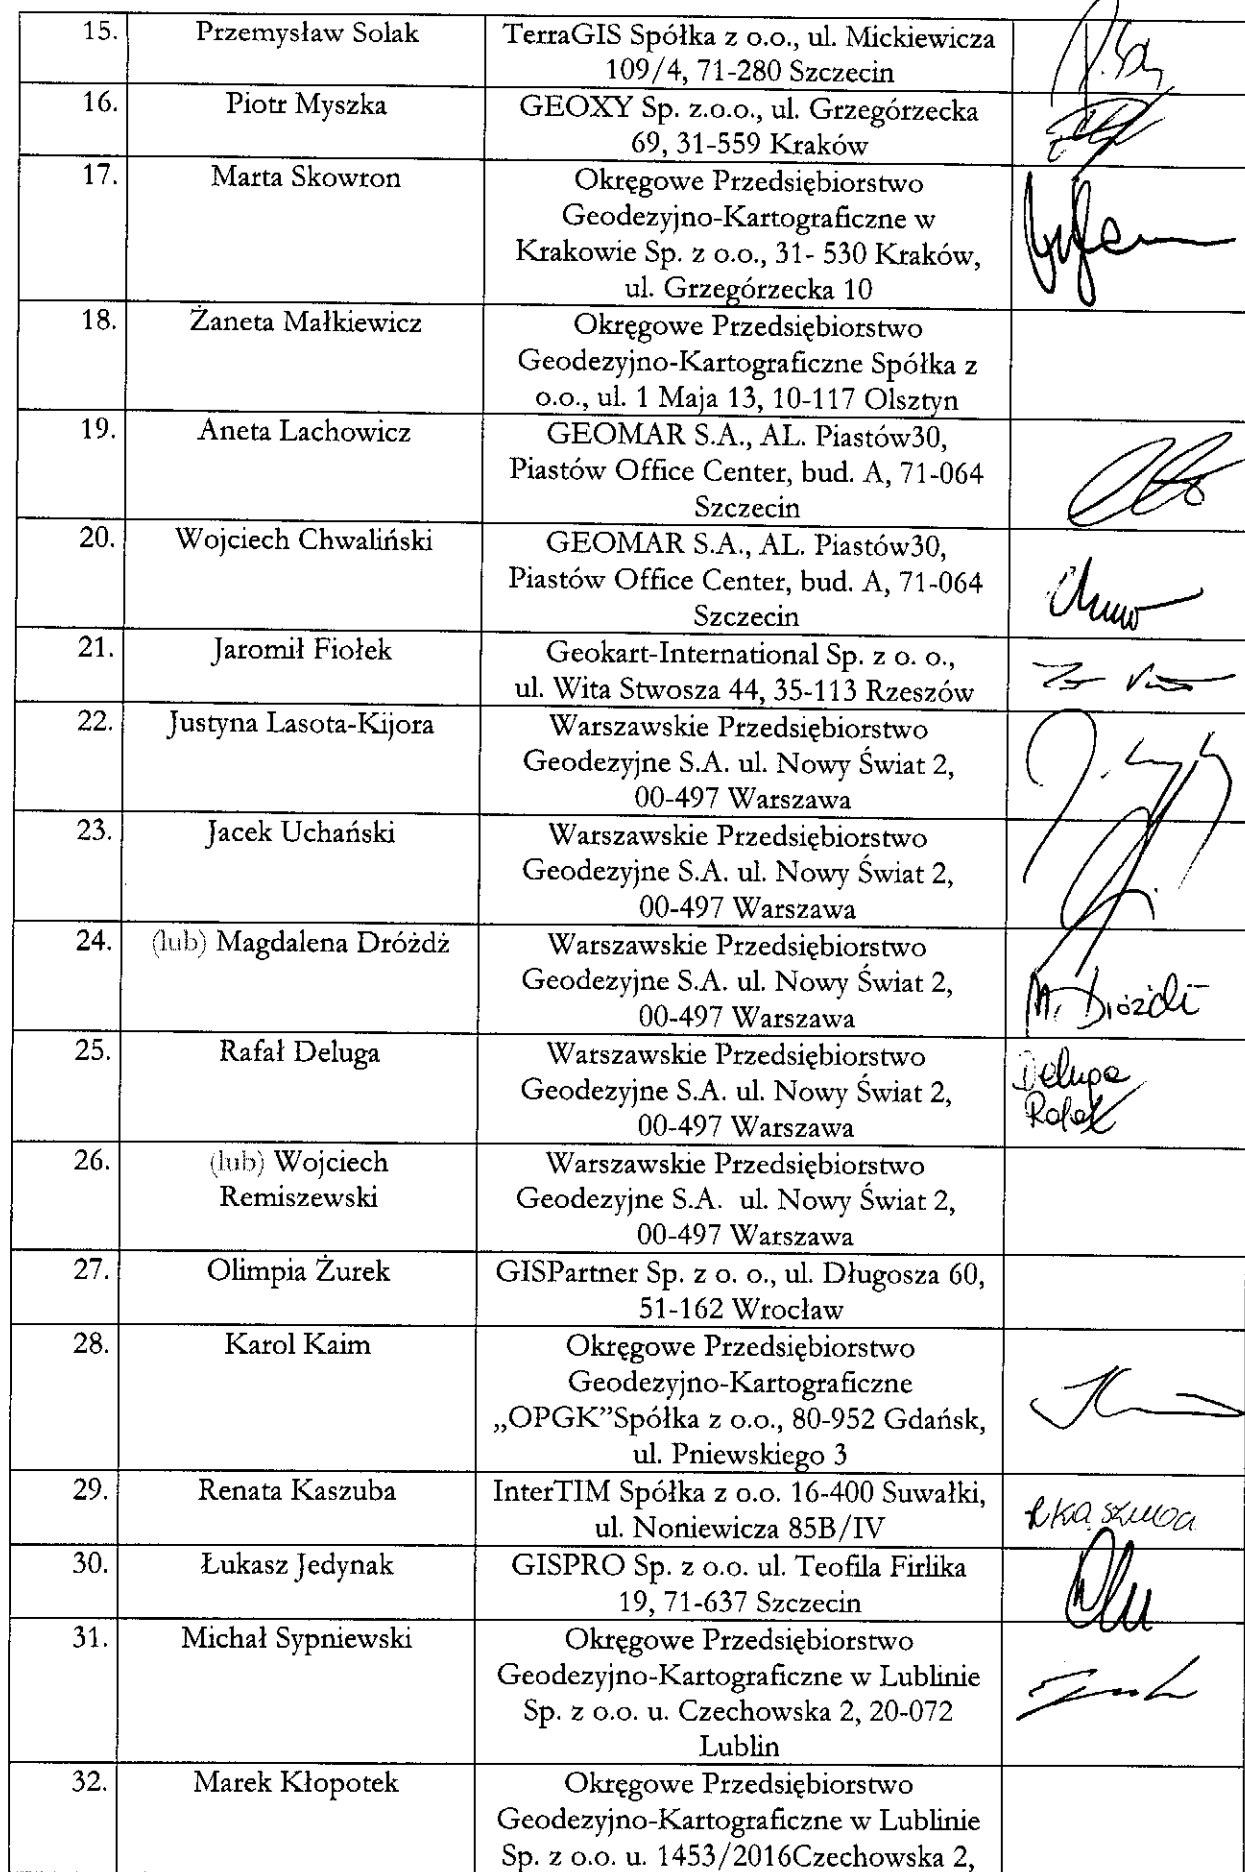 15. Przemysław Solak TerraGIS Spółka z o.o., ul. Mickiewicza
109/4, 71-280 Szczecin
16. Piotr Myszka GEOXY Sp. z.o.o., ul. Grzegórzecka
69, 31-559 Kraków
17. Marta Skowron Okręgowe Przedsiębiorstwo
Geodezyjno-Kartograficzne w
Krakowie Sp. z o.o., 31- 530 Kraków,
ul. Grzegórzecka 10
18. Żaneta Małkiewicz Okręgowe Przedsiębiorstwo
Geodezyjno-Kartograficzne Spółka z
o.o., ul. 1 Maja 13, 10-117 Olsztyn
19. Aneta Lachowicz GEOMAR S.A., AL. Piastów30,
Piastów Office Center, bud. A, 71-064
Szczecin
20. Wojciech Chwaliński GEOMAR S.A., AL. Piastów30,
Piastów Office Center, bud. A, 71-064
Szczecin
21. Jaromił Fiołek Geokart-International Sp. z o. o.,
ul. Wita Stwosza 44, 35-113 Rzeszów
22. Justyna Lasota-Kijora Warszawskie Przedsiębiorstwo
Geodezyjne S.A. ul. Nowy Świat 2,
00-497 Warszawa
23. Jacek Uchański Warszawskie Przedsiębiorstwo
Geodezyjne S.A. ul. Nowy Świat 2,
00-497 Warszawa
24. (lub) Magdalena Dróżdż Warszawskie Przedsiębiorstwo
Geodezyjne S.A. ul. Nowy Świat 2,
00-497 Warszawa M. Dróżdż
25. Rafał Deluga Warszawskie Przedsiębiorstwo Deluga
Geodezyjne S.A. ul. Nowy Świat 2, Rafał
00-497 Warszawa
26. (lub) Wojciech Warszawskie Przedsiębiorstwo
Remiszewski Geodezyjne S.A. ul. Nowy Świat 2,
00-497 Warszawa
27. Olimpia Żurek GISPartner Sp. z o. o., ul. Długosza 60,
51-162 Wrocław
28. Karol Kaim Okręgowe Przedsiębiorstwo
Geodezyjno-Kartograficzne
„OPGK”Spółka z o.o., 80-952 Gdańsk,
ul. Pniewskiego 3
29. Renata Kaszuba InterTIM Spółka z o.o. 16-400 Suwałki,
ul. Noniewicza 85B/IV R Kaszuba
30. Łukasz Jedynak GISPRO Sp. z o.o. ul. Teofila Firlika
19, 71-637 Szczecin
31. Michał Sypniewski Okręgowe Przedsiębiorstwo
Geodezyjno-Kartograficzne w Lublinie
Sp. z o.o. u. Czechowska 2, 20-072
Lublin
32. Marek Kłopotek Okręgowe Przedsiębiorstwo
Geodezyjno-Kartograficzne w Lublinie
Sp. z o.o. u. 1453/2016Czechowska 2,